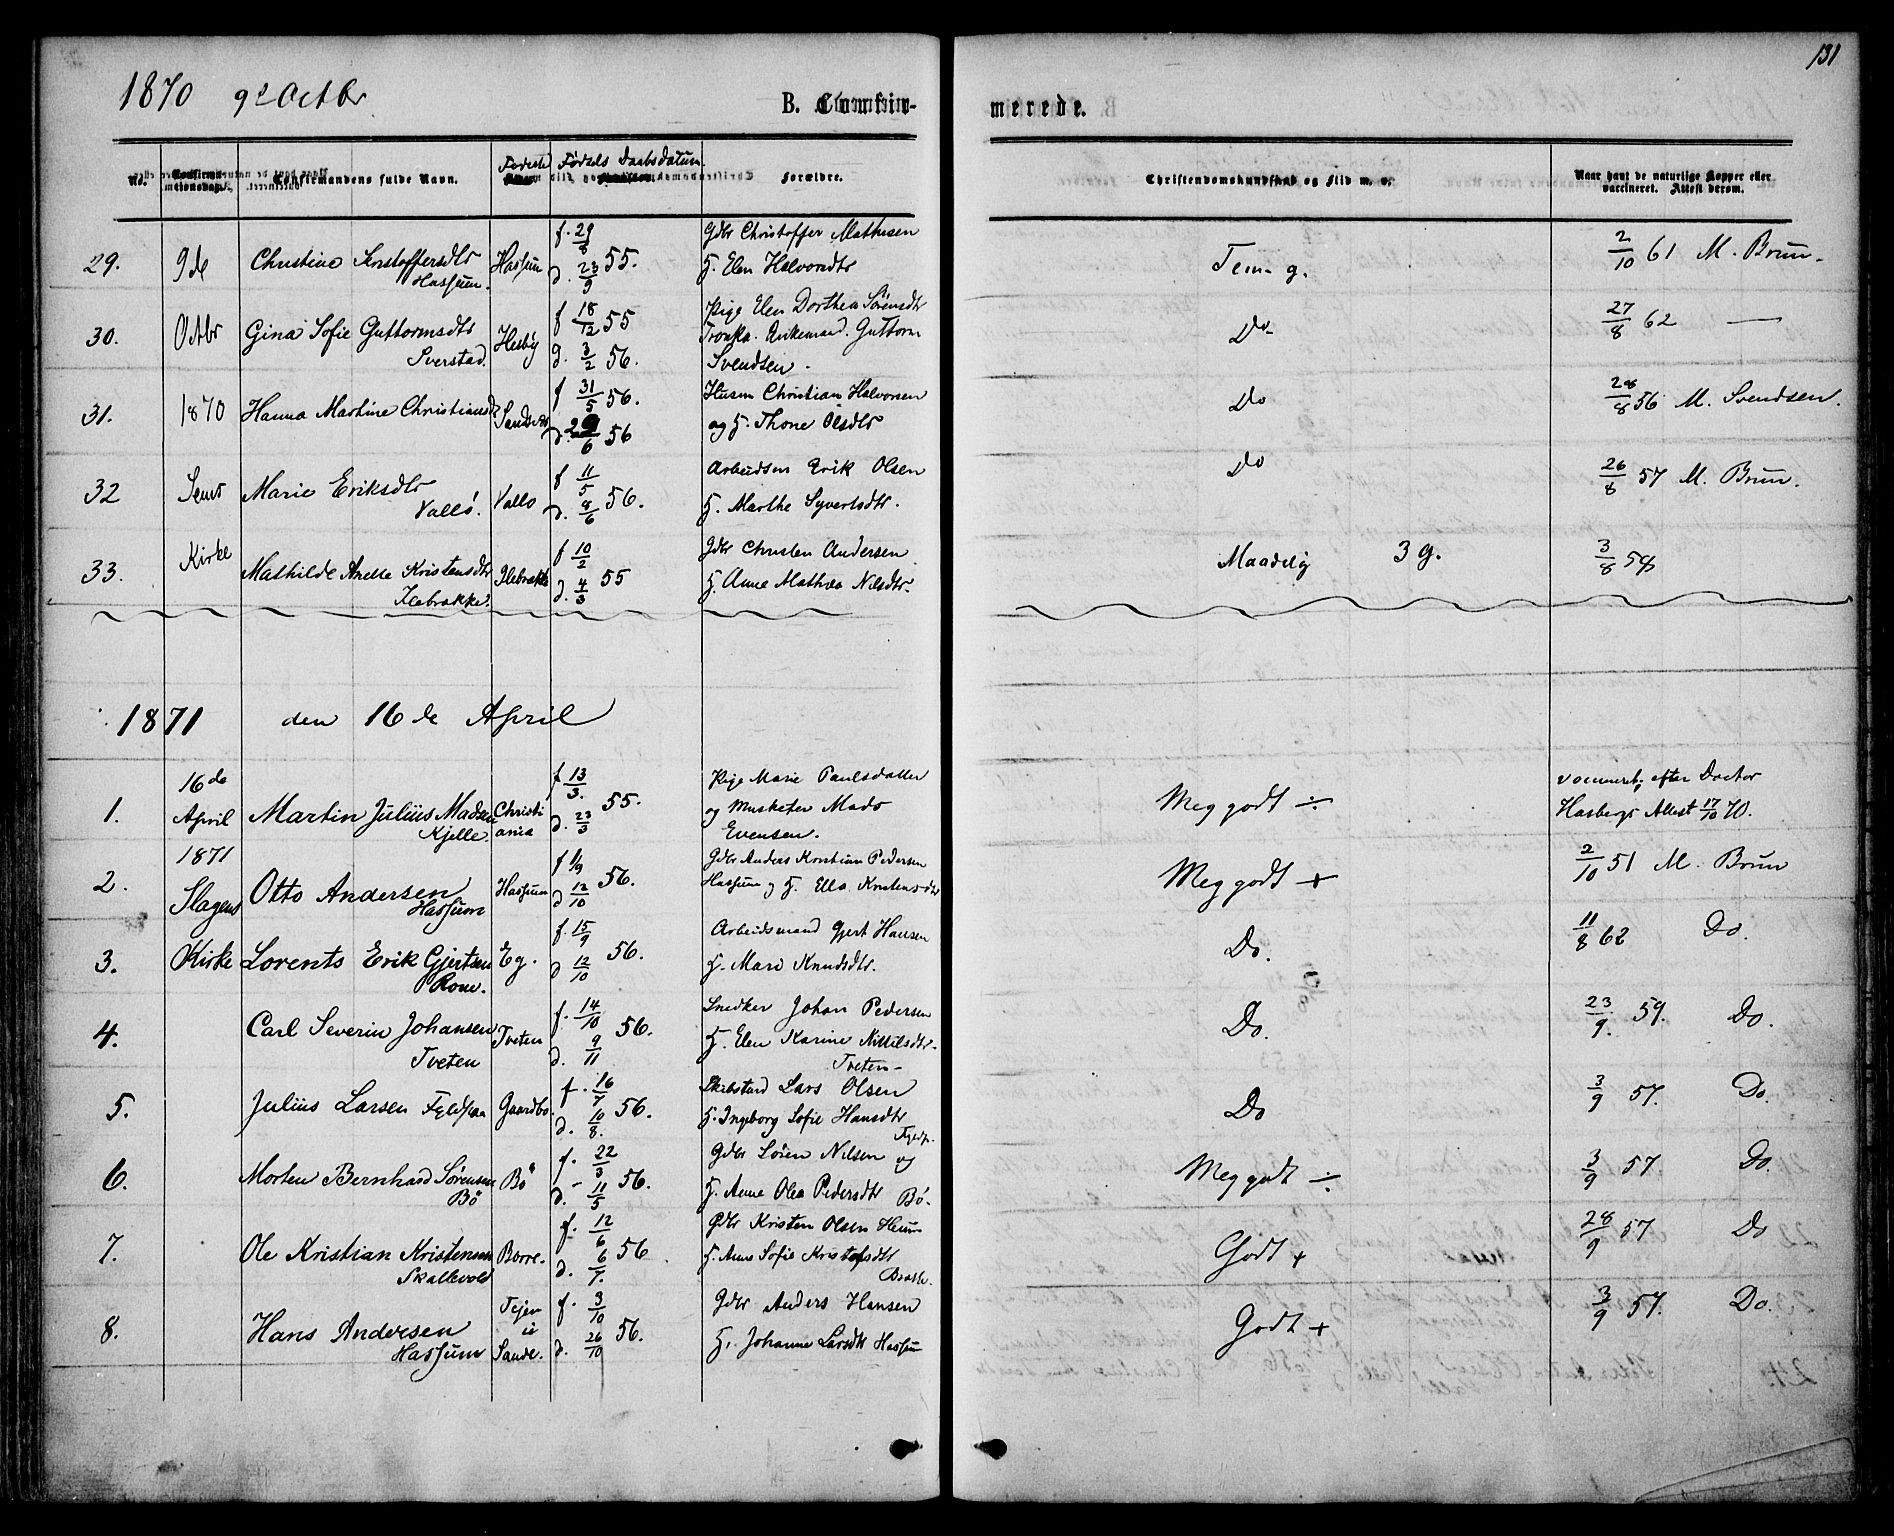 131
1870 9de Octbr B. Confir- merede.
No. Confirmationsdag. Confirmandens fulde Navn. Fødested Fødsels Daabsdatum. Forældre. Christendomskundskab og Flid m. v. Naar havt de naturlige Kopper eller vaccineret. Attest derom.
29. 9de Christine Hassum Hassum f. 29/8 d. 23/9 55. Gdbr Christoffer Mathisen
H. Elen Halvorsdtr Tem. g. 2/10 61 M. Brun.
30. Octbr Gina Sofie Guttormsdtr Sverstad. Hesby f 18/12 55 g. 3/2 56. Pige Elen Dorthea Sörensdtr
Enkemand. Guttorm
Svendsen. Do 27/8 62 —
31. 1870 Hanna Martine Christiansd f 31/5 56. 6 56 Husm Christian Halvorsen
og H. Thone Olsdtr Do 28/8 56 M. Svendsen.
32 Sems Marie Eriksdtr Vallö. Vallo f 11/5 d. 8/6 56. Arbeidsm Erik Olsen
H. Marthe Syvertsdtr. Do 26/8 57 M. Brun.
33. Kirke Mathilde Anette Kristensdtr Ilebrække. Ilebrække f 10/2 d. 4/3 55 Gdbr Christen Andersen
H. Anne Mathea Nilsdtr. Maadelig 3 g. 3/8 58
1871 den 16de April
1. 16de April Martin Julius Madsen Kjelle. Christiania f 13/3. d. 23/3 55. Pige Marie Paulsdatter
og Musketer Mads
Evensen. Meg godt ÷ efter Doctor
Hasbergs Attest 17/10 70.
2. 1871 Slagens Otto Andersen Hassum Hassum f 1/9 d 12/10 56. Gdbr Anders Kristian Pedersen
Hassum og H. Kristensdtr Meg godt + 2/10 51 M. Brun
3. Kirke Lorents Erik Gjertsen Rone. Eg. f. 15/9 d 12/10 56. Arbeidsmand Gjert Hansen
H. Mari Knudsdtr. Do. 11/8 62 Do.
4. Carl Severin Johansen Tveten Tveten f. 14/10 d. 9/11 56. Snedker Johan Pedersen
H. Elen Karine Nittilsdtr.
Tveten Do. 23/9. 59. Do.
5. Julius Larsen Gaardbo. f. 16/7 d. 10/8. 56. Lars Olsen
H. Ingeborg Sofie Hansdtr Do 3/9 57. Do.
6. Morten Bernhard Sørensen Bö Bö f. 22/3 d. 11/5 56. Gdbr Sören Nilsen og
H. Anne Olea Pedersdtr Bö. Meg godt ÷ 3/9 57. Do.
7. Ole Kristian Kristensen Skallevold Borre. f. 12/6 d. 6/7. 56 Gdbr Kristen Olsen
H. Anne Sofie Kristofsdtr Godt + 28/9 57 Do
8. Hans Andersen Hassum i Sande. f. 3/10 d. 26/10 56. Gdbr Anders Hansen
H. Johanne Larsdtr Hassum Godt + 3/9 57. Do.